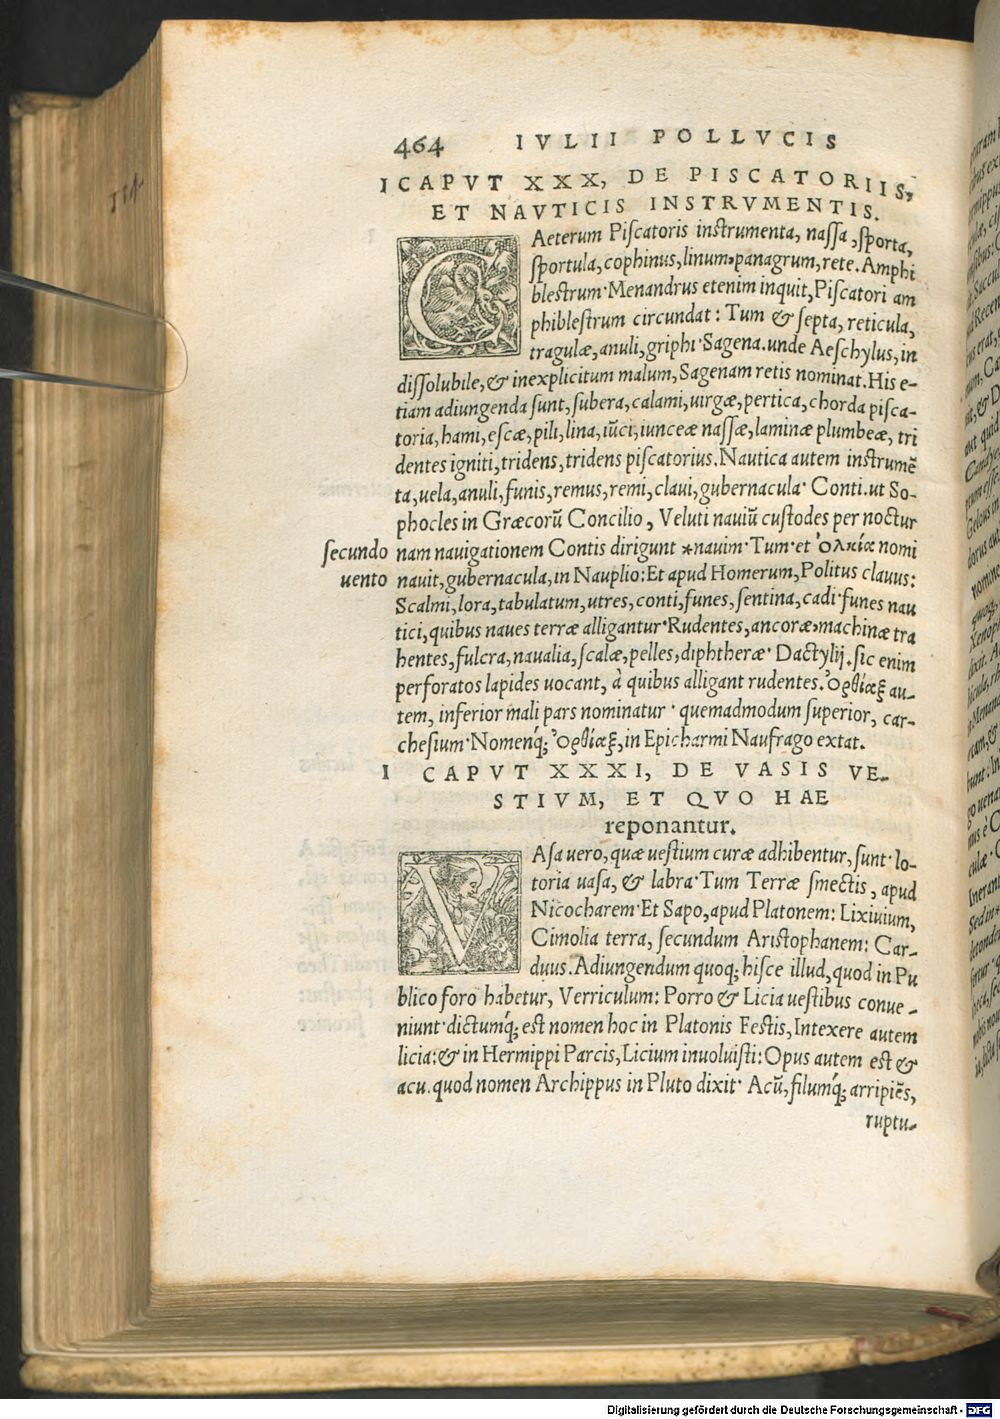 464 IVLII POLLVCIS
ICAPVT XXX, DE PISCATORIIS,
ET NAVTICIS INSTRVMENTIS.
CAeterum Piſcatoris inſtrumenta, naſſa, ſporta,
ſportula, cophinus, linum, panagrum, rete. Amphi
bleſtrum. Menandrus etenim inquit, Piſcatori am
phibleſtrum circundat: Tum & ſepta, reticula,
tragulæ, anuli, griphi. Sagena. unde Aeſchylus, in
diſſolubile, & inexplicitum malum, Sagenam retis nominat. His e-
tiam adiungenda ſunt, ſubera, calami, uirgæ, pertica, chorda piſca-
toria, hami, eſcæ, pili, lina, iũci, iunceæ naſſæ, laminæ plumbeæ, tri
dentes igniti, tridens, tridens piſcatorius. Nautica autem inſtrumẽ
ta, uela, anuli, funis, remus, remi, claui, gubernacula. Conti. ut So-
phocles in Græcorũ Concilio, Veluti nauiũ cuſtodes per noctur
ſecundo nam nauigationem Contis dirigunt *nauim. Tum. et ὁλκία nomi
uento nauit, gubernacula, in Nauplio: Et apud Homerum, Politus clauus:
Scalmi, lora, tabulatum, utres, conti, funes, ſentina, cadi. funes nau
tici, quibus naues terræ alligantur. Rudentes, ancoræ, machinæ tra
hentes, fulcra, naualia, ſcalæ, pelles, diphtheræ. Dactylij. ſic enim
perforatos lapides uocant, à quibus alligant rudentes. Ὀρθίαξ au-
tem, inferior mali pars nominatur. quemadmodum ſuperior, car-
cheſium. Nomenq́; Ὀρθίαξ, in Epicharmi Naufrago extat.
I CAPVT XXXI, DE VASIS VE-
STIVM, ET QVO HAE
reponantur.
VAſa uero, quæ ueſtium curæ adhibentur, ſunt. lo-
toria uaſa, & labra. Tum Terræ ſmectis, apud
Nicocharem. Et Sapo, apud Platonem: Lixiuium,
Cimolia terra, ſecundum Ariſtophanem: Car-
duus. Adiungendum quoq; hiſce illud, quod in Pu
blico foro habetur, Verriculum: Porro & Licia ueſtibus conue-
niunt. dictumq́; eſt nomen hoc in Platonis Feſtis, Intexere autem
licia: & in Hermippi Parcis, Licium inuoluiſti: Opus autem eſt &
acu. quod nomen Archippus in Pluto dixit. Acũ, filumq́; arripiẽs,
ruptu-
Digitalisierung gefördert durch die Deutsche Forschungsgemeinschaft - DFG